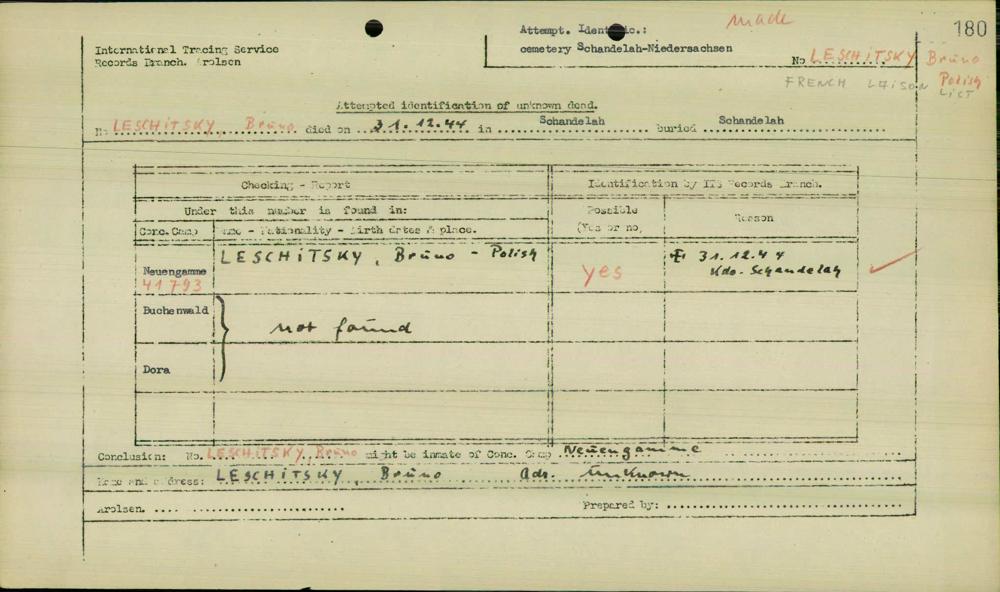 made
180
Attempt. Identific.:
cemetery Schandelah-Niedersachsen
International Tracing Service
Records Branch. Arolsen
No LESCHITSKY Bruno
FRENCH LAISON Polish
LIST
Attempted identification of unknown dead.
No LESCHITSKY, Bruno died on 31.12.44 in Schandelah buried Schandelah
Checking - Report
Identification by ITS Records Branch.
Under this number is found in:
Possible
(Yes or no)
Reason
Conc. Camp
Name - Nationality - Birth dates & place.
Neuengamme
41793
LESCHITSKY, Bruno - Polish
yes
31.12.44
Kdo. Schandelah
Buchenwald
not found
Dora
Conclusion: No. LESCHITSKY, Bruno might be inmate of Conc. Camp Neuengamme
Name and address: LESCHITSKY, Bruno Adr. unknown
Arolsen.
Prepared by: